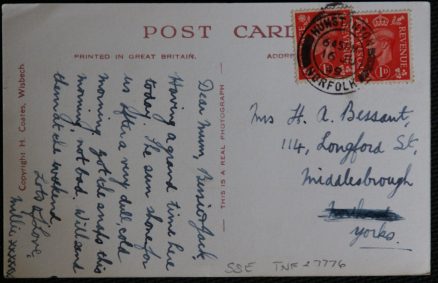 POST CARD
PRINTED IN GREAT BRITAIN.
Dear Mum, Bessie & Jack,
Having a grand time here
today. The sun shone for
us after a very dull, cold
morning, got de snaps this
morning, not bad. Will send
them at de weekend
Lots of love,
Millie xxxxx
Copyright H. Coates, Wisbech
THIS IS A REAL PHOTOGRAPH
HUNSTANTON
NORFOLK
REVENUE
1D
REVENUE
1D
Mrs H. A. Bessant,
114, Longford St,
Middlesbrough
Yorks.
SSE TNF 27776